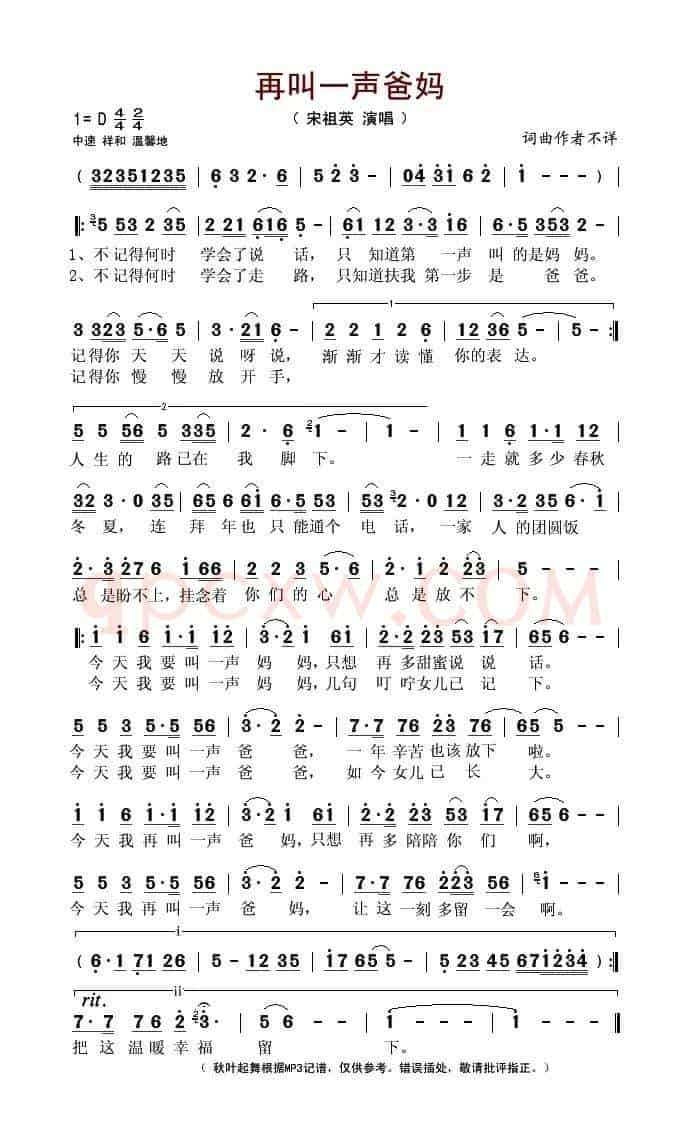 再叫一声爸妈
1= D 4/4 2/4
（ 宋祖英 演唱 ）
中速 祥和 温馨地
词曲作者不详
( 32351235 | 6 3 2 · 6 | 5 2 3 - | 04 31 6 2 | 1 - - - )
‖: 3 5 53 2 35 | 2 21 616 5 - | 61 12 3·3 16 | 6·5 353 2 - |
1、不记得何时 学会了说 话，只 知道第 一声 叫 的是妈 妈。
2、不记得何时 学会了走 路，只知道扶我 第一步 是 爸 爸。
1
3 323 5·6 5 | 3·21 6 - | 2 2 1 2 6 | 12 36 5 - | 5 - :‖
记得你 天 天 说 呀 说， 渐 渐 才 读 懂 你的 表 达。
记得你 慢 慢 放 开 手，
2
5 5 56 5 335 | 2 · 6 2 1 - | 1 - - - | 1 1 6 1·1 12 |
人 生 的 路 已在 我 脚 下。 一 走 就 多 少 春秋
32 3·0 35 | 65 6 61 6·5 53 | 53 3 2·0 12 | 3·2 35 6·1 |
冬 夏，连 拜 年 也 只 能通 个 电 话，一家 人 的 团 圆 饭
2·3276 1 66 | 2 2 3 5·6 | 2·1 2 23 | 1 - - - |
总 是盼不上，挂念着 你 们 的 心 总 是 放 不 下。
‖: 1 1 6 1·1 12 | 3·2 1 61 | 2·2 23 53 17 | 65 6 - - |
今 天 我 要 叫 一 声 妈 妈，只想 再 多 甜蜜 说 说 话。
今 天 我 要 叫 一 声 妈 妈，几句 叮 咛 女儿 已 记 下。
5 5 3 5·5 56 | 3·2 2 - | 7·7 76 23 76 | 56 5 - - |
今 天 我 要 叫 一 声 爸 爸， 一 年 辛 苦 也 该 放下 啦。
今 天 我 要 叫 一 声 爸 爸， 如 今 女儿 已 长 大。
1 1 6 1·1 12 | 3·2 1 61 | 2·2 23 53 17 | 65 6 - - |
今 天 我 再 叫 一 声 爸 妈，只想 再 多 陪陪 你 们 啊，
5 5 3 5·5 56 | 3·2 2 - | 7·7 76 223 56 | 6 1 - - - |
今 天 我 再 叫 一 声 爸 妈， 让 这 一 刻 多 留 一会 啊。
i
( 6·1 71 26 | 5 - 12 35 | 2·3 21 65 | 5456 45 671234 ) :‖
rit. ii
7·7 76 2 2 3· | 5 - - - | 1 - - - | 1 - - - ‖
把 这 温 暖 幸 福 留 下。
（ 秋叶起舞根据MP3记谱，仅供参考。错误插处，敬请批评指正。）